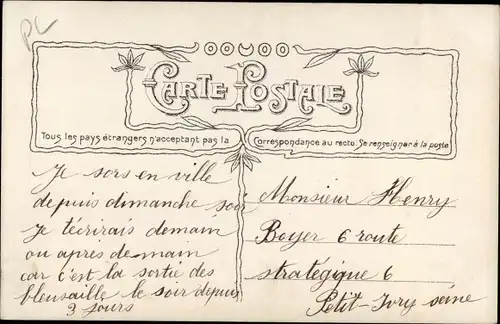 PL
CARTE POSTALE
Tous les pays étrangers n'acceptant pas la Correspondance au recto. Se renseigner à la poste
Je sors en ville
depuis dimanche soir
Je técrirais demain
ou après demain
car c'est la sortie des
bleusaille le soir depuis
3 jours
Monsieur Henry
Boyer 6 route
stratégique 6
Petit-Ivry seine